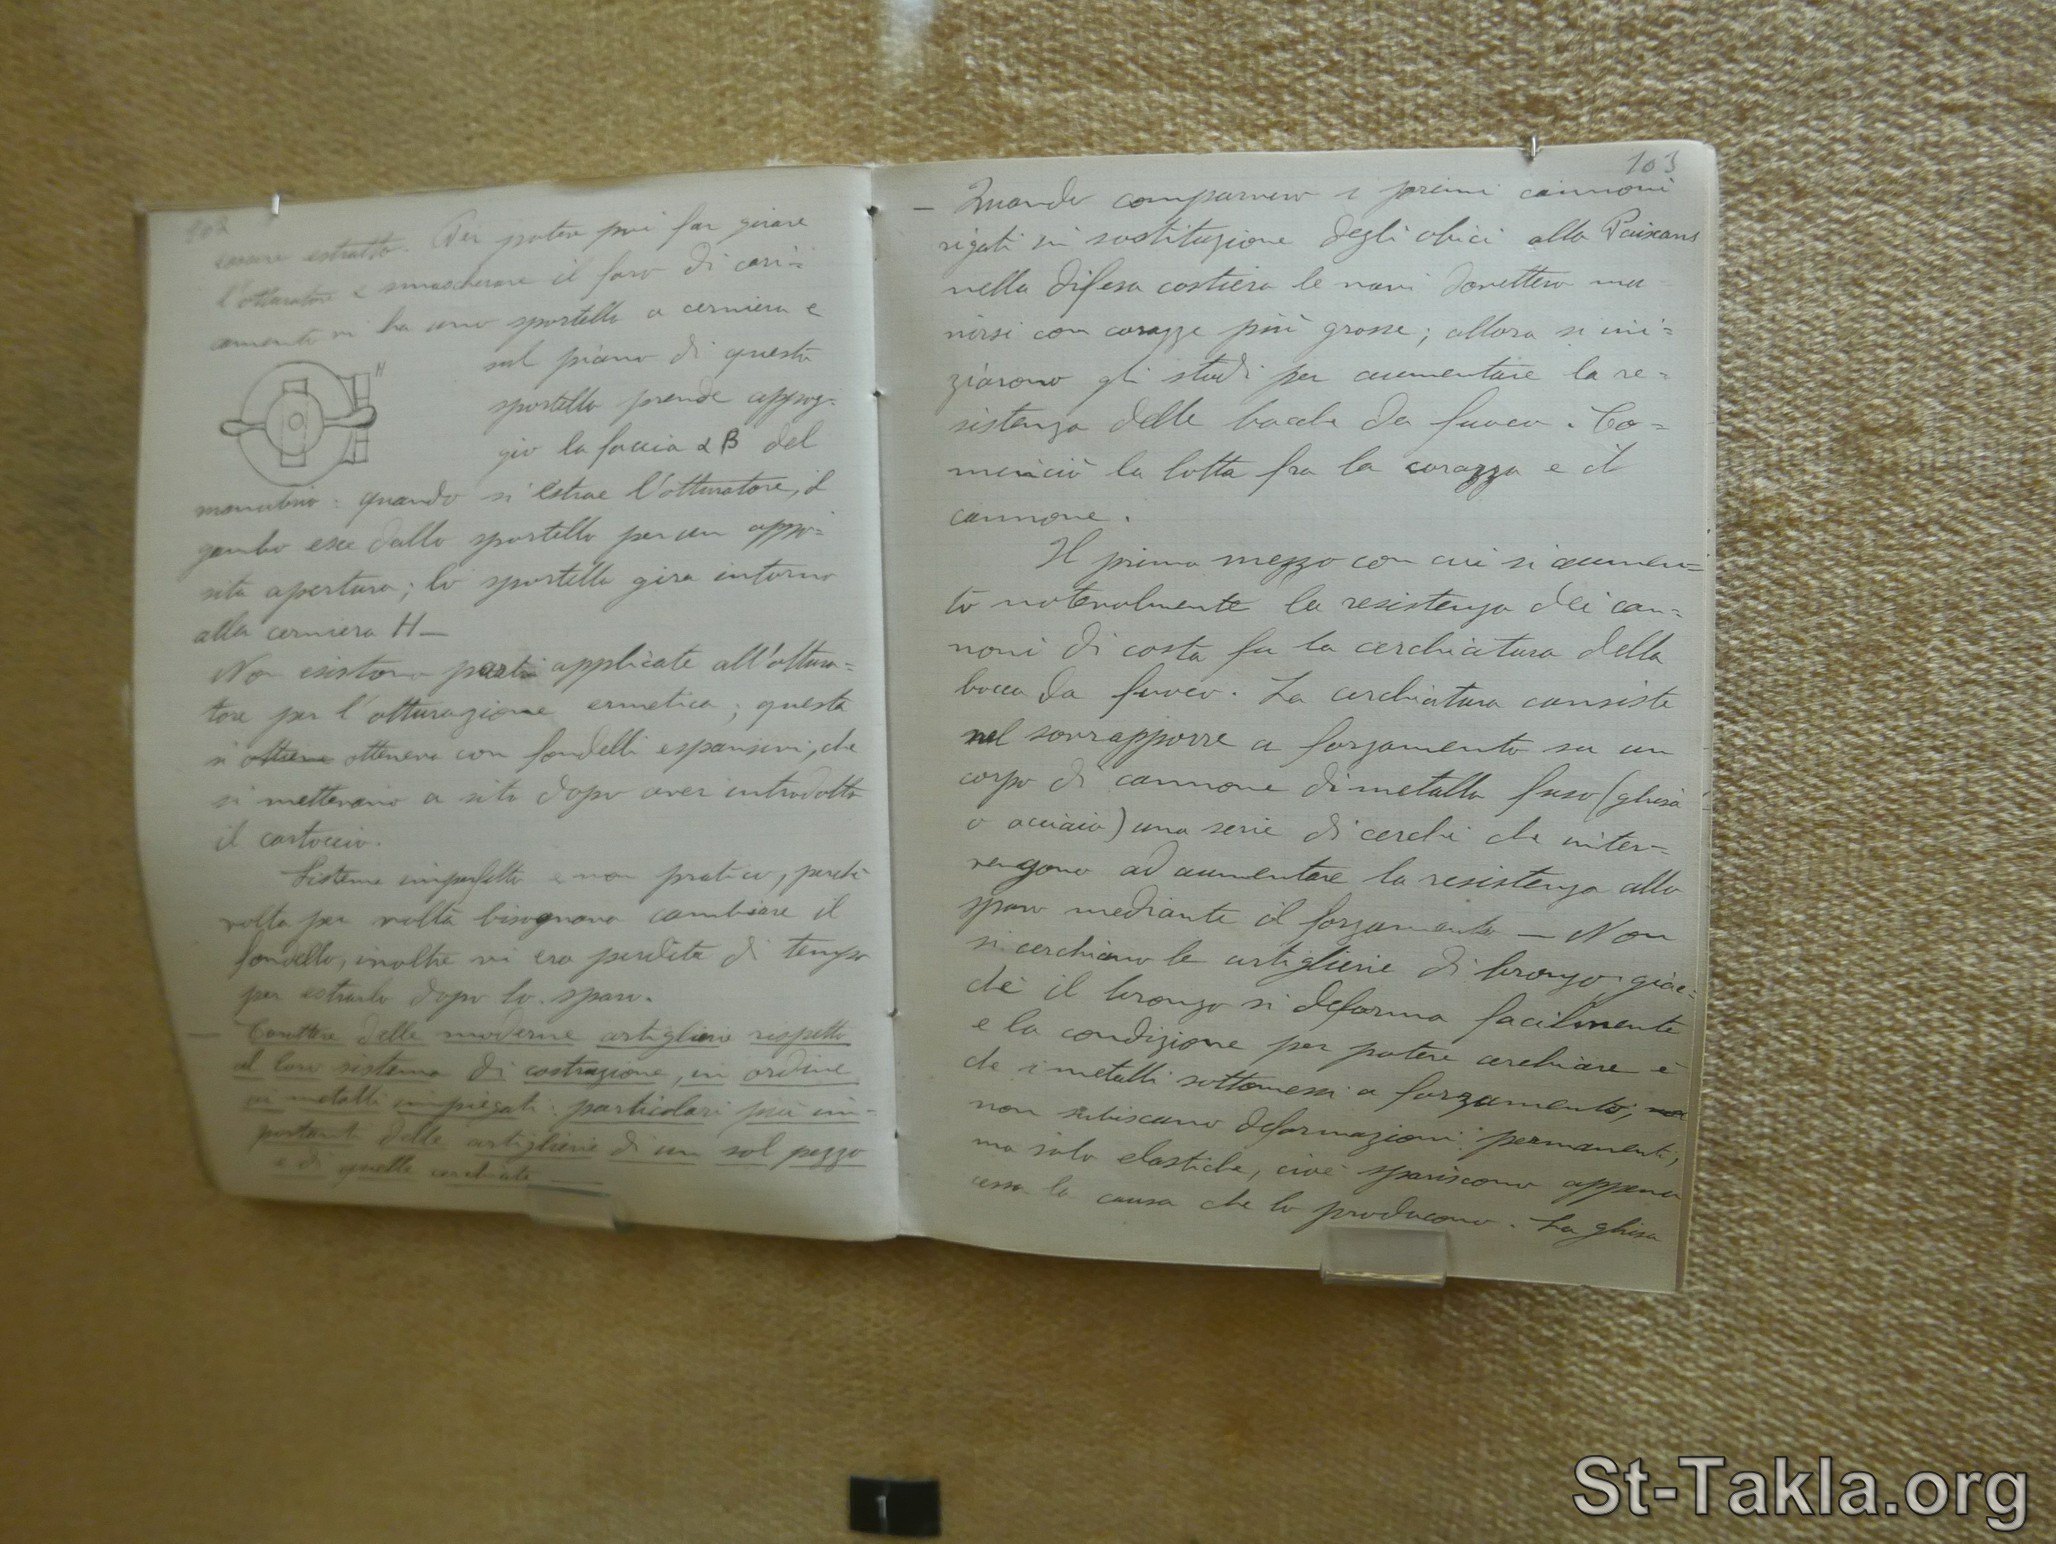 102
essere estratto. Per potere poi far girare
l'otturatore e smascherare il foro di cari=
camento vi ha uno sportello a cerniera e
sul piano di questo
sportello prende appog-
gio la faccia α β del
H
manubrio: quando si estrae l'otturatore, il
gambo esce dallo sportello per un appo=
sita apertura; lo sportello gira intorno
alla cerniera H—
Non esistono parti applicate all'ottura=
tore per l'otturazione ermetica; questa
si ottiene otteneva con fondelli espansivi, che
si mettevano a sito dopo aver introdotto
il cartoccio.
Sistema imperfetto e non pratico, perchè
volta per volta bisognava cambiare il
fondello, inoltre vi era perdita di tempo
per estrarlo dopo lo sparo.
— Carattere delle moderne artiglierie rispetto
al loro sistema di costruzione, in ordine
ai metalli impiegati: particolari più im-
portanti delle artiglierie di un sol pezzo
e di quelle cerchiate —
103
— Quando comparvero i primi cannoni
rigati in sostituzione degli obici alla Paixans
nella difesa costiera le navi dovettero mu-
nirsi con corazze più grosse; allora si ini=
ziarono gli studi per aumentare la re=
sistenza delle bocche da fuoco. Co=
minciò la lotta fra la corazza e il
cannone.
Il primo mezzo con cui si aumen=
tò notevolmente la resistenza dei can=
noni di costa fu la cerchiatura della
bocca da fuoco. La cerchiatura consiste
nel sovrapporre a forzamento su un
corpo di cannone di metallo fuso (ghisa
o acciaio) una serie di cerchi che inter=
vengono ad aumentare la resistenza allo
sparo mediante il forzamento — Non
si cerchiano le artiglierie di bronzo giac=
chè il bronzo si deforma facilmente
e la condizione per potere cerchiare è
che i metalli sottomessi a forzamento,
non subiscano deformazioni permanenti,
ma solo elastiche, cioè spariscono appena
cessa la causa che lo producono. La ghisa
1
St-Takla.org